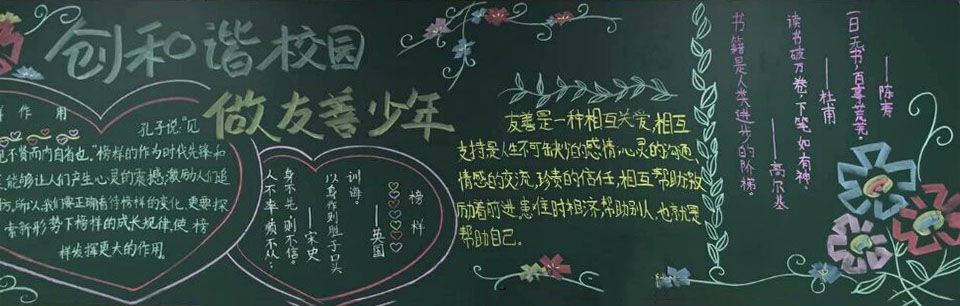 创和谐校园
做友善少年
样作用
孔子说:“见
见不贤而内自省也。”榜样的作为时代先锋和
能够让人们产生心灵的震撼,激励人们追
所以,我们要正确看待榜样的变化,更要探
索新形势下榜样的成长规律,使榜
样发挥更大的作用。
榜样
——英国
训诲。
以身作则胜于口头
——宋史
身不先,则不信。
人不率,则不从;
友善是一种相互关爱,相互
支持是人生不可缺少的感情,心灵的沟通、
情感的交流,珍贵的信任,相互帮助,激
励着前进,患难时相济帮助别人,也就是
帮助自己。
一日无书,百事荒芜。
——陈寿
读书破万卷,下笔如有神。
——杜甫
书籍是人类进步的阶梯。
——高尔基